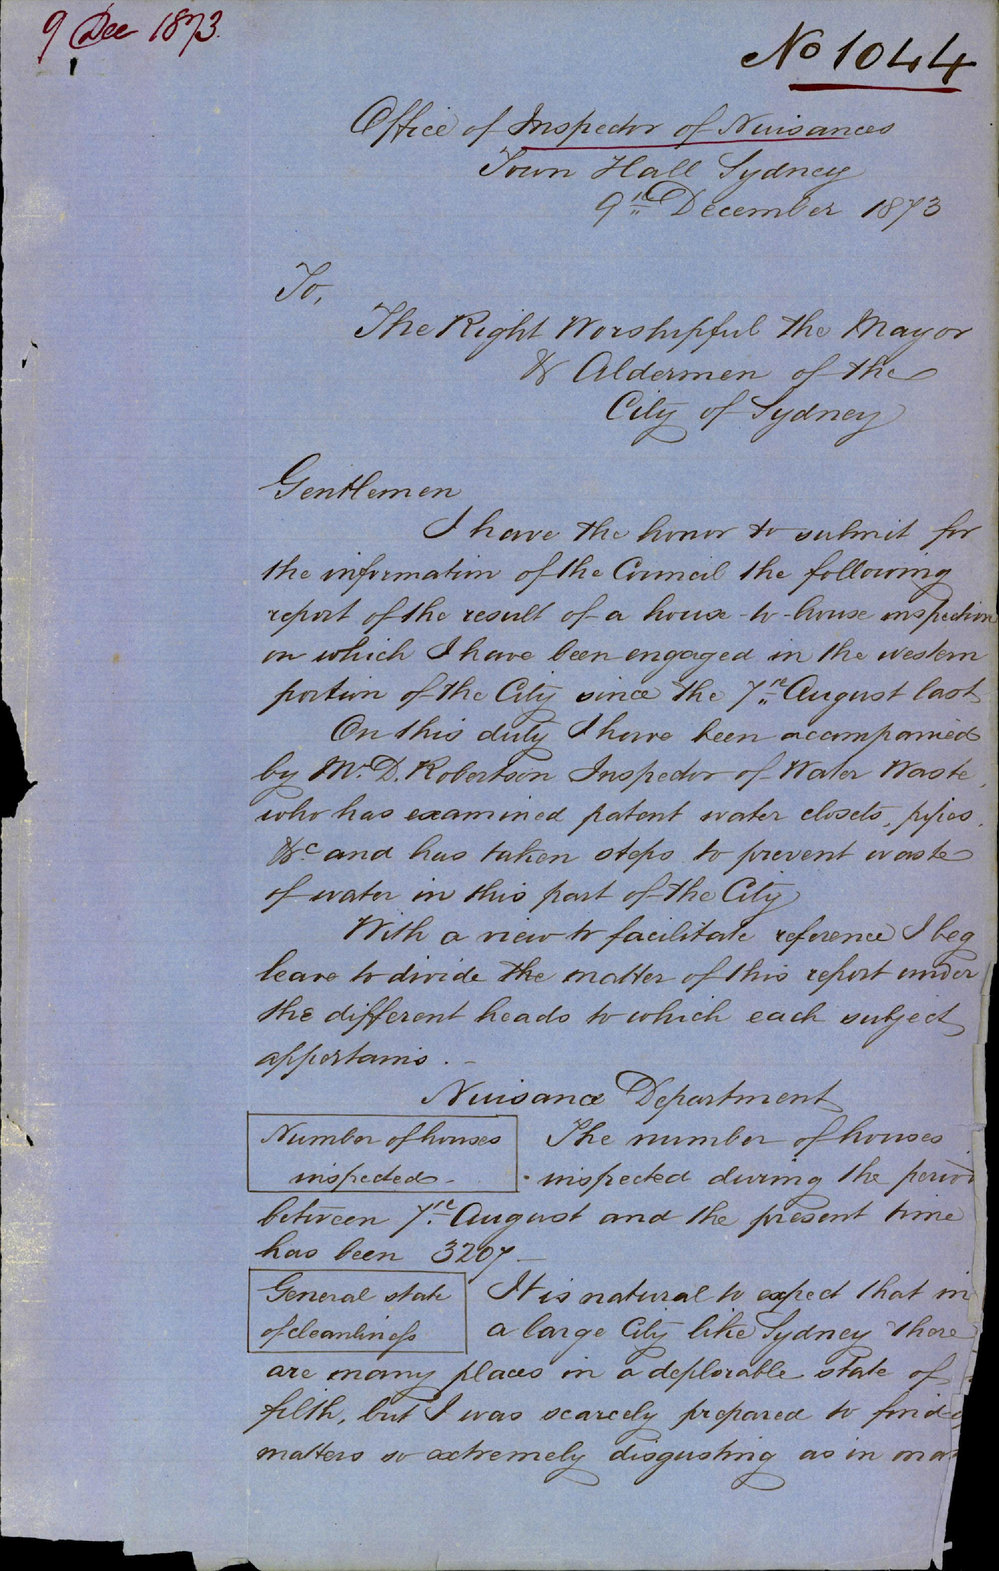 9 Dec 1873.
No 1044
Office of Inspector of Nuisances
Town Hall Sydney
9th December 1873
To,
The Right Worshipful the Mayor
& Aldermen of the
City of Sydney
Gentlemen
I have the honor to submit for
the information of the Council the following
report of the result of a house-to-house inspection
on which I have been engaged in the western
portion of the City since the 7th August last.
On this duty I have been accompanied
by Mr. D. Robertson Inspector of Water Waste,
who has examined patent water closets, pipes,
&c and has taken steps to prevent waste
of water in this part of the City
With a view to facilitate reference I beg
leave to divide the matter of this report under
the different heads to which each subject
appertains. -
Nuisance Department
Number of houses
inspected -
The number of houses
inspected during the period
between 7th August and the present time
has been 3207 -
General state
of cleanliness
It is natural to expect that in
a large City like Sydney there
are many places in a deplorable state of
filth, but I was scarcely prepared to find
matters so extremely disgusting as in